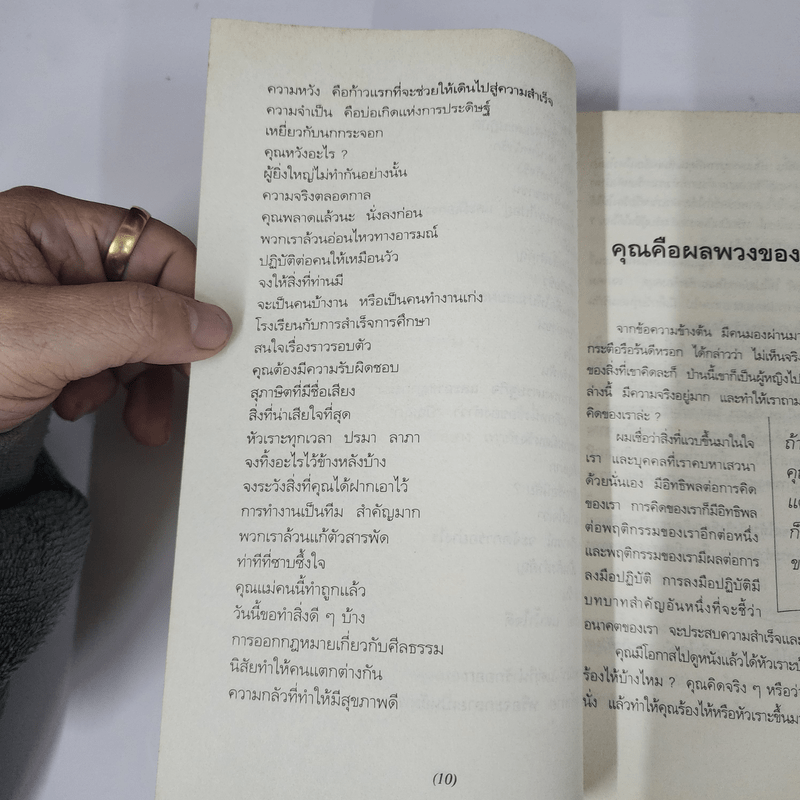 ความหวัง คือก้าวแรกที่จะช่วยให้เดินไปสู่ความสำเร็จ
ความจำเป็น คือบ่อเกิดแห่งการประดิษฐ์
เหยี่ยวกับนกกระจอก
คุณหวังอะไร ?
ผู้ยิ่งใหญ่ไม่ทำกันอย่างนั้น
ความจริงตลอดกาล
คุณพลาดแล้วนะ นั่งลงก่อน
พวกเราล้วนอ่อนไหวทางอารมณ์
ปฏิบัติต่อคนให้เหมือนวัว
จงให้สิ่งที่ท่านมี
จะเป็นคนบ้างาน หรือเป็นคนทำงานเก่ง
โรงเรียนกับการสำเร็จการศึกษา
สนใจเรื่องราวรอบตัว
คุณต้องมีความรับผิดชอบ
สุภาษิตที่มีชื่อเสียง
สิ่งที่น่าเสียใจที่สุด
หัวเราะทุกเวลา ปรมา ลาภา
จงทิ้งอะไรไว้ข้างหลังบ้าง
จงระวังสิ่งที่คุณได้ฝากเอาไว้
การทำงานเป็นทีม สำคัญมาก
พวกเราล้วนแก้ตัวสารพัด
ท่าทีที่ซาบซึ้งใจ
คุณแม่คนนี้ทำถูกแล้ว
วันนี้ขอทำสิ่งดี ๆ บ้าง
การออกกฎหมายเกี่ยวกับศีลธรรม
นิสัยทำให้คนแตกต่างกัน
ความกลัวที่ทำให้มีสุขภาพดี
(10)
คุณคือผลพวงของ
จากข้อความข้างต้น มีคนมองผ่านมา
กระตือรือร้นดีหรอก ได้กล่าวว่า ไม่เห็นจริง
ของสิ่งที่เขาคิดละก็ ป่านนี้เขาก็เป็นผู้หญิงไป
ล่างนี้ มีความจริงอยู่มาก และทำให้เราถาม
คิดของเราล่ะ ?
ผมเชื่อว่าสิ่งที่แวบขึ้นมาในใจ
เรา และบุคคลที่เราคบหาเสวนา
ด้วยนั่นเอง มีอิทธิพลต่อการคิด
ของเรา การคิดของเราก็มีอิทธิพล
ต่อพฤติกรรมของเราอีกต่อหนึ่ง
และพฤติกรรมของเรามีผลต่อการ
ลงมือปฏิบัติ การลงมือปฏิบัติมี
บทบาทสำคัญอันหนึ่งที่จะชี้ว่า
อนาคตของเรา จะประสบความสำเร็จและ
คุณมีโอกาสไปดูหนังแล้วได้หัวเราะบ้
ร้องไห้บ้างไหม ? คุณคิดจริง ๆ หรือว่า
นั่ง แล้วทำให้คุณร้องไห้หรือหัวเราะขึ้นมา
ถ้า
คุณ
แต่
ก็